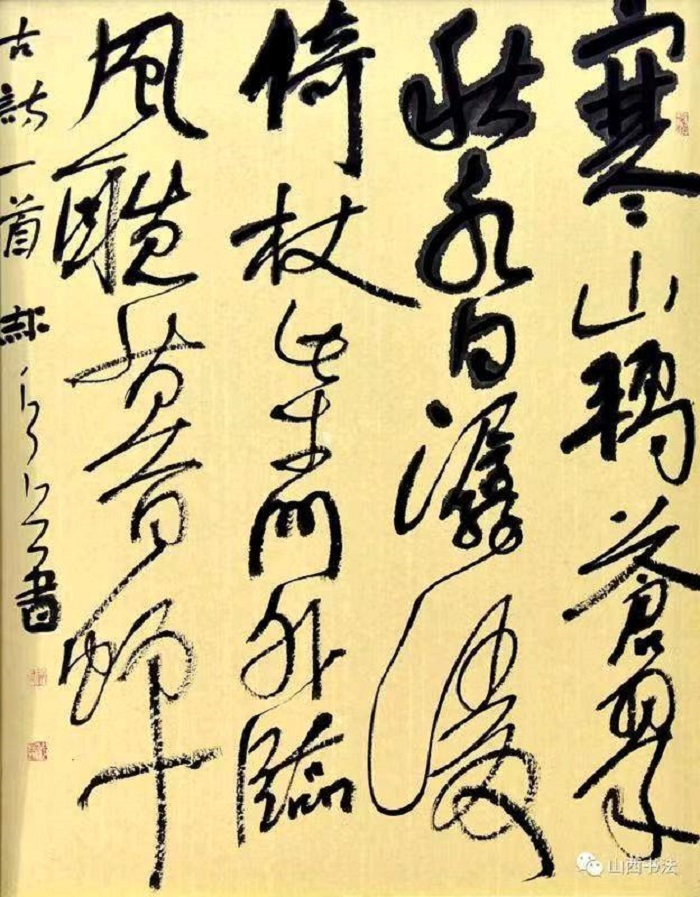 寒山轉蒼翠
秋水日潺湲
倚杖柴門外臨
風聽暮蟬
古詩一首 書
山西书法